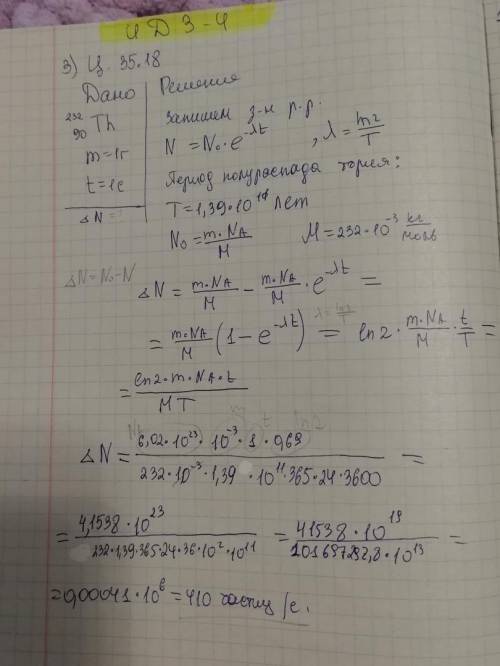 ИДЗ-4
3) Ц. 35.18
Дано
²³²₉₀Th
m=1г
t=1c
ΔN=?
ΔN=N₀-N
Решение
Запишем з-н р.р.
N = N₀·e^(-λt), λ = ln2/T
Период полураспада тория:
T=1,39·10¹⁰ лет
N₀ = m·N_A/M M=232·10⁻³ кг/моль
ΔN = m·N_A/M - m·N_A/M · e^(-λt) =
= m·N_A/M (1-e^(-λt)) = ln2 · m·N_A/M · t/T =
λ = ln2/T
= ln2·m·N_A·t / MT
N_A t ln2
ΔN = 6,02·10²³·10⁻³·1·0,69 / 232·10⁻³·1,39·10¹¹·365·24·3600 =
= 4,1538·10²³ / 232·1,39·365·24·36·10²·10¹¹ = 41538·10¹⁹ / 101697292,8·10¹³ =
=0,00041·10⁶=410 частиц/с.